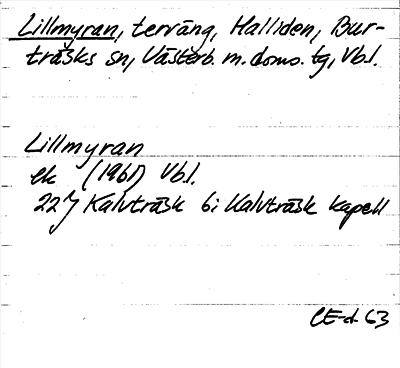 Lillmyran, terräng, Halliden, Bur-
träsks sn, Västerb. m. doms. tg, Vbl.
Lillmyran
ek (1961) Vbl.
22J Kalvträsk 6i Kalvträsk kapell
CE-d 63